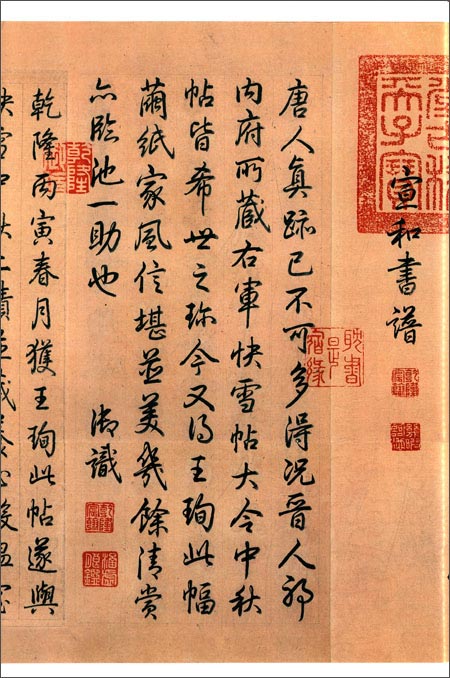 宣和書譜
耽書是宿緣
唐人眞跡已不可多得況晉人耶
內府所藏右軍快雪帖大令中秋
帖皆希世之珎今又得王珣此幅
繭紙家風信堪並美幾餘清賞
亦臨池一助也 御識
乾隆丙寅春月獲王珣此帖遂與
快雪中秋二蹟並藏養心殿溫室